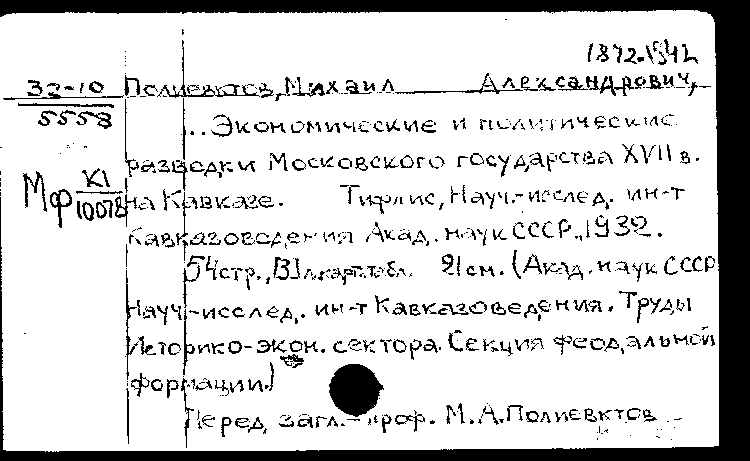 1872-1942
32-10 Полиевктов, Михаил Александрович,
5558
...Экономические и политические
разведки Московского государства XVII в.
Мф К1/10078 на Кавказе. Тифлис, Науч.-исслед. ин-т
Кавказоведения Акад. наук СССР, 1932.
54 стр., [3] л. карт. табл. 21 см. (Акад. наук СССР
Науч.-исслед. ин-т Кавказоведения. Труды
Историко-экон. сектора. Секция феодальной
формации.)
Перед загл.- проф. М.А.Полиевктов